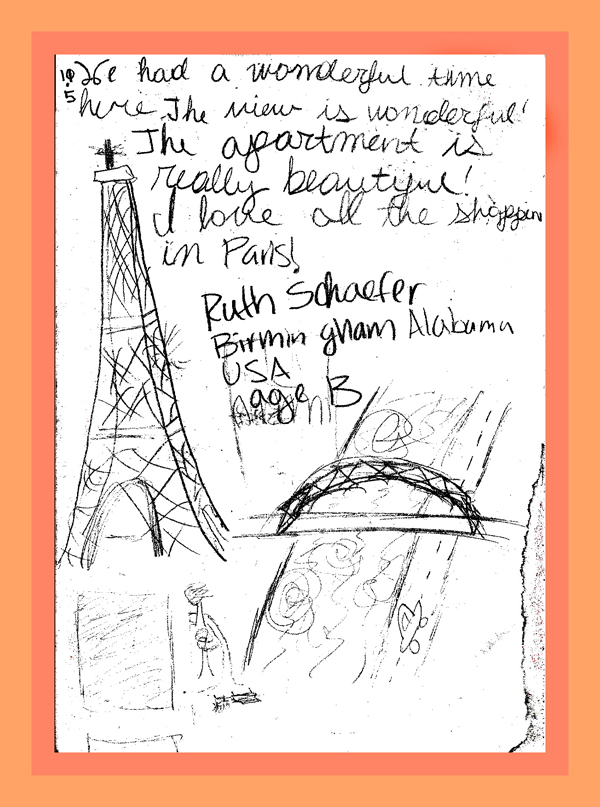 We had a wonderful time
here. The view is wonderful!
The apartment is
really beautiful!
I love all the shoppin
in Paris!
Ruth Schaefer
Birmingham Alabama
USA
age